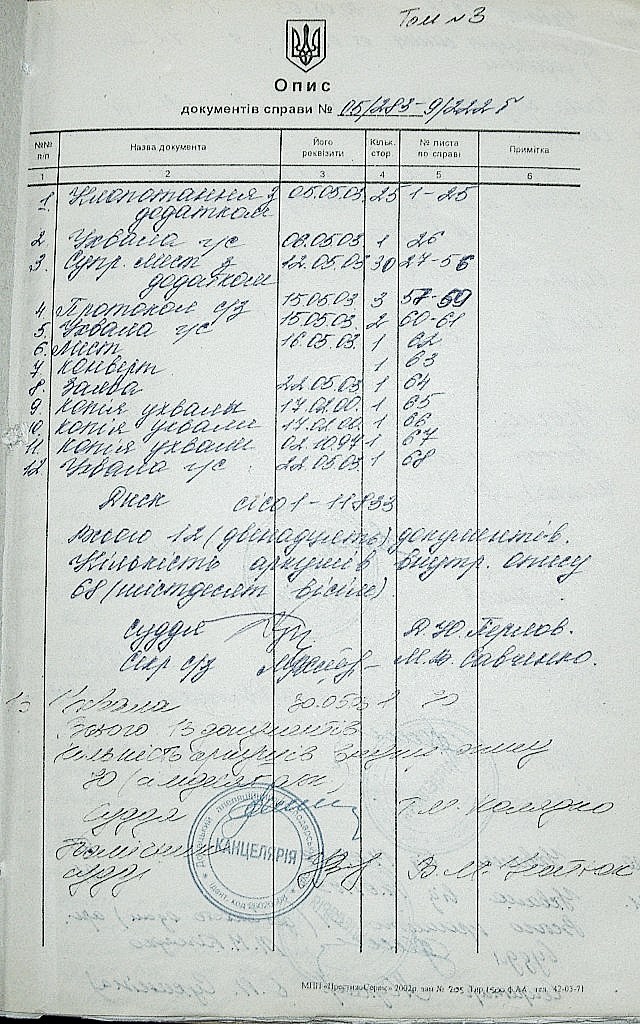 Том №3
Опис
документів справи № 05/283-9/222Г
№№ п/п Назва документа Його реквізити Кільк. стор № листа по справі Примітка
1 2 3 4 5 6
1. Клопотання з додатком 05.05.03. 25 1-25
2. Ухвала г/с 06.05.03 1 26
3. Супр. лист з додатком 12.05.03 30 27-56
4. Протокол с/з 15.05.03 3 57-59
5. Ухвала г/с 15.05.03. 2 60-61
6. Лист 16.05.03. 1 62
7. Конверт 1 63
8. Заява 22.05.03 1 64
9. Копія ухвали 17.02.00. 1 65
10. Копія ухвали 17.02.00. 1 66
11. Копія ухвали 02.10.97 1 67
12. Ухвала г/с 22.05.03 1 68
Диск
Всього 12 (дванадцять) документів.
Кількість аркушів внутр. опису
68 (шістдесят вісім).
Суддя
Секр с/з М.В. Савченко.
13 Ухвала 30.05.03 1 70
Всього 13 документів
Кількість аркушів внутр. опису
70 (сімдесят)
Суддя
КАНЦЕЛЯРІЯ
Помічник
судді
МПП «Престиж-Сервіс» 2002р. зам № 205 Тир. 1500 Ф.А4. тел. 42-03-71